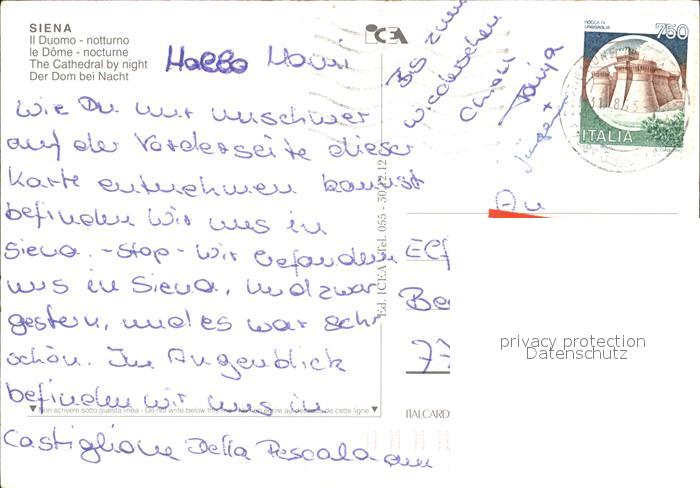 SIENA
Il Duomo - notturno
le Dôme - nocturne
The Cathedral by night
Der Dom bei Nacht
ICEA
ROCCA DI URBISAGLIA
750
ITALIA
Hallo
Wie Du nur unschwer
auf der Vorderseite dieser
Karte entnehmen kannst
befinden wir uns in
Siena. - Stop - Wir befanden
uns in Siena, und zwar
gestern, und es war sehr
schön. Im Augenblick
befinden wir uns in
Castiglione Della Pescala am
Bis zum
wiedersehen
Ciao
Tanja
+
Jürgen
An
Ed. ICEA - Tel. 055 -
77
Non scrivere sotto questa linea - Do not write below this line - Ne pas écrire au dessous de cette ligne
ITALCARD
privacy protection
Datenschutz